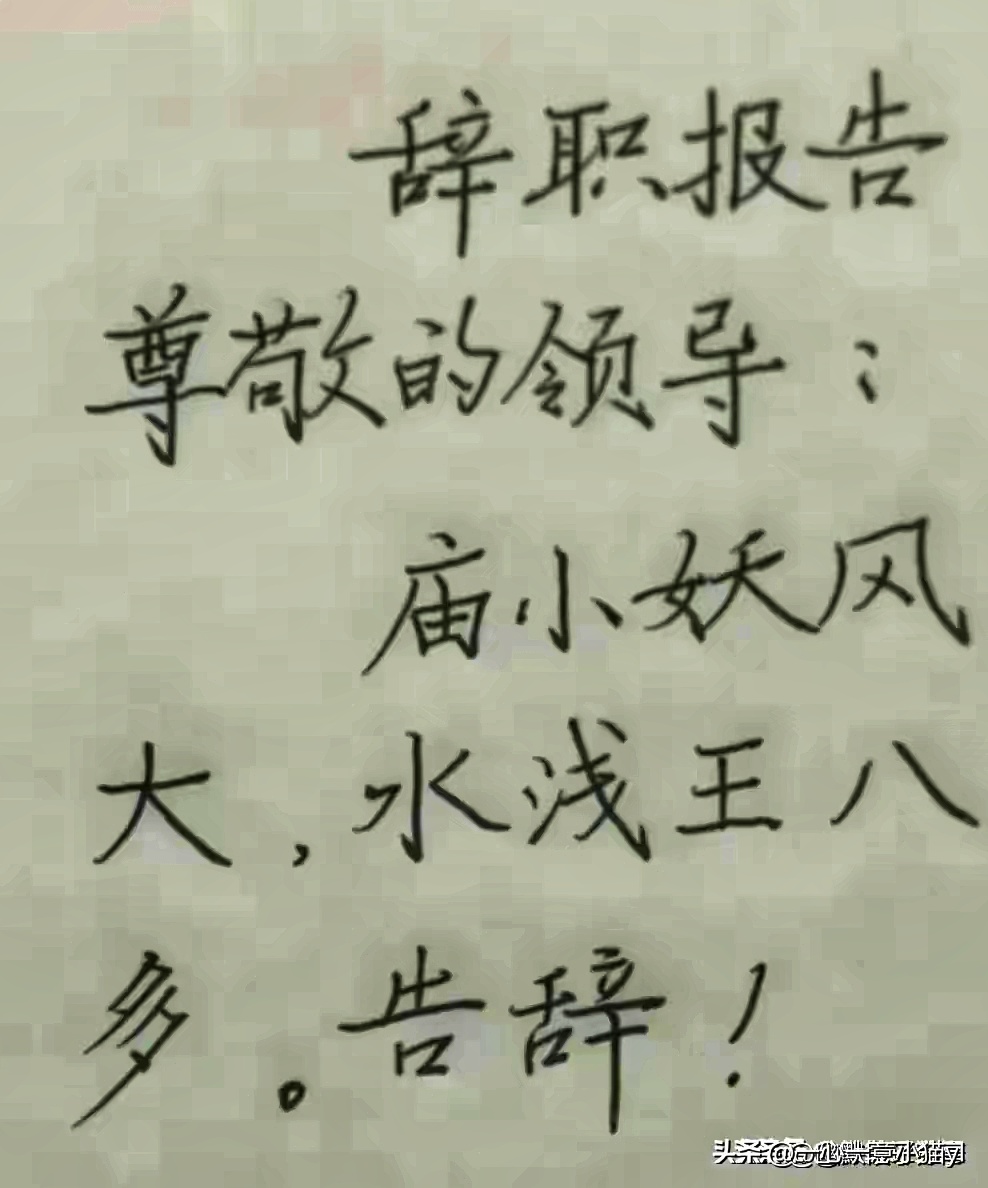 辞职报告
尊敬的领导：
庙小妖风
大，水浅王八
多。告辞！
头条